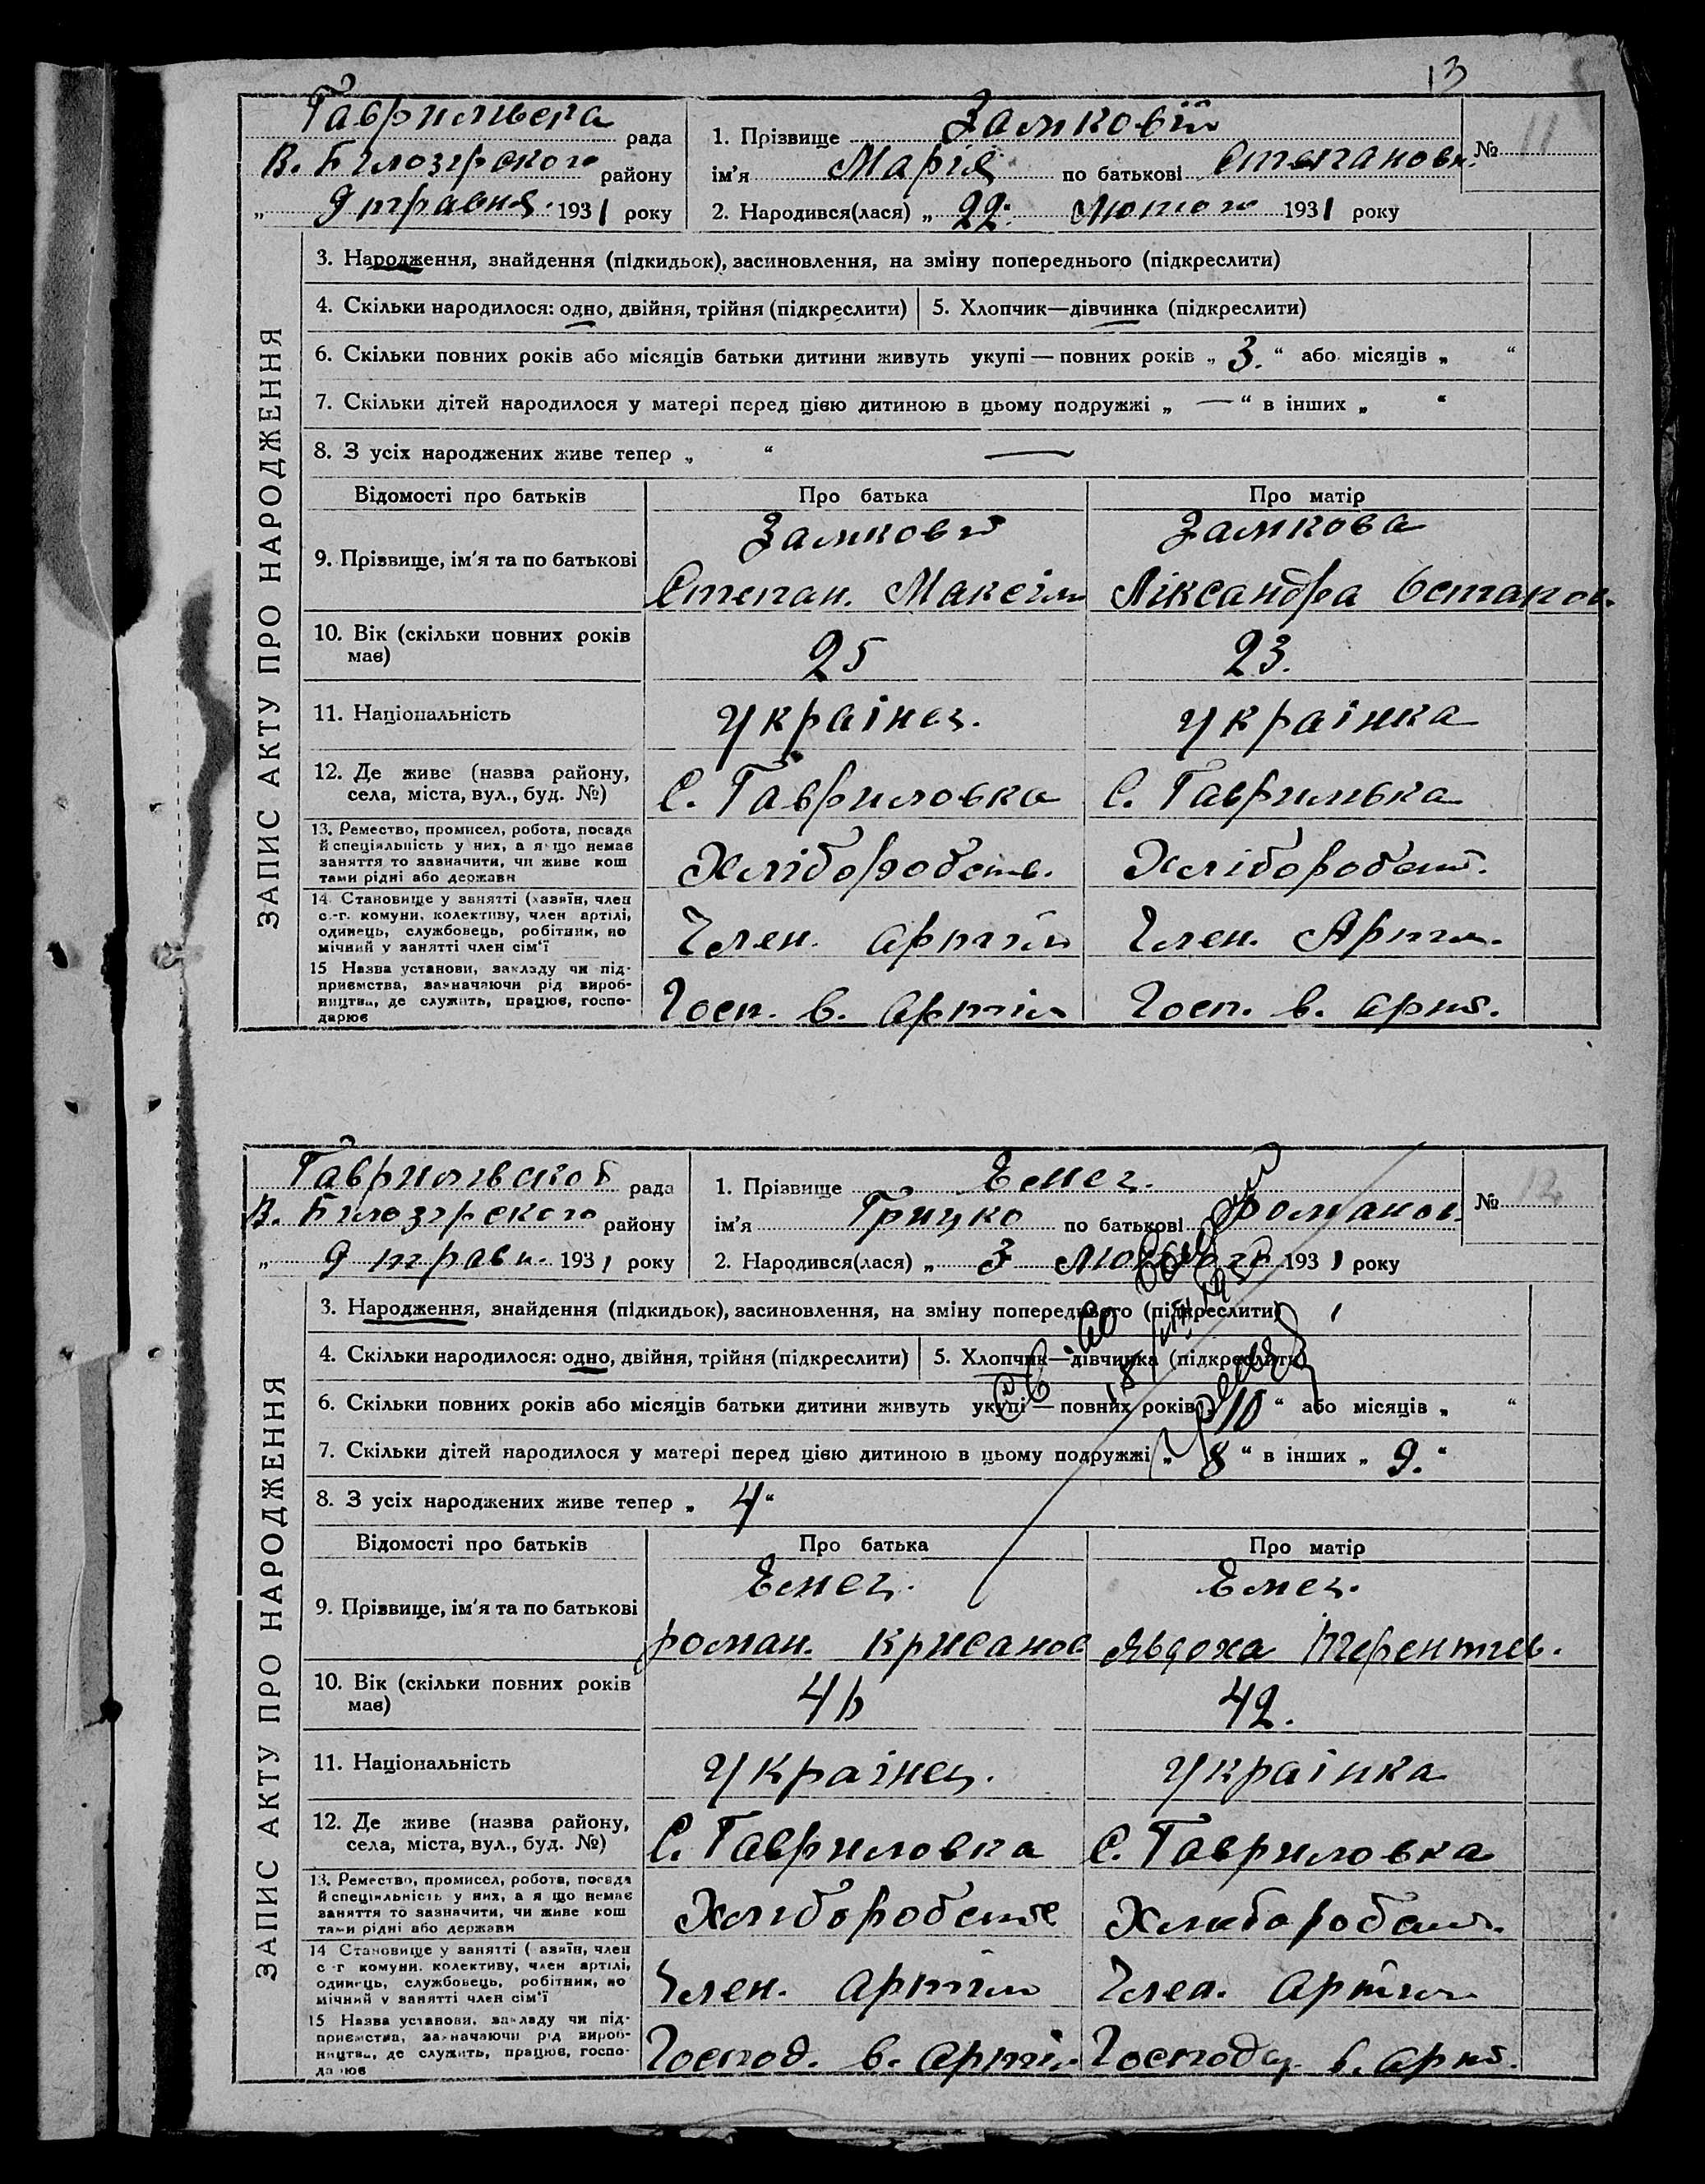 13
Гаврильвска рада
В. Білозірского району
„ 9 травня 1931 року
1. Прізвище Замковій
ім'я Марія по батькові Степановн.
№ 11
2. Народився(лася) „ 22. Лютого 1931 року
ЗАПИС АКТУ ПРО НАРОДЖЕННЯ
3. Народження, знайдення (підкидьок), засиновлення, на зміну попереднього (підкреслити)
4. Скільки народилося: одно, двійня, трійня (підкреслити) 5. Хлопчик—дівчинка (підкреслити)
6. Скільки повних років або місяців батьки дитини живуть укупі — повних років „ 3. “ або місяців „ “
7. Скільки дітей народилося у матері перед цією дитиною в цьому подружжі „ — “ в інших „ “
8. З усіх народжених живе тепер „ “ —
Відомості про батьків Про батька Про матір
9. Прізвище, ім'я та по батькові
Замковий Замкова
Степан. Максім Ліксандра Остапов.
10. Вік (скільки повних років має) 25 23.
11. Національність українец. українка
12. Де живе (назва району, села, міста, вул., буд. №) С. Гавриловка С. Гаврилвка
13. Ремество, промисел, робота, посада
й спеціяльність у них, а я що немає
заняття то зазначити, чи живе кош
тами рідні або держави
Хліборобств. Хліборобст.
14 Становище у занятті (хазяїн, член
с.-г. комуни, колективу, член артілі,
одинець, службовець, робітник, по
мічний у занятті член сім'ї
Член. артіли Член. Артіл.
15 Назва установи, закладу чи під-
приємства, зазначаючи рід вироб-
ництва, де служить, працює, госпо-
дарює
Госп. в. артіл Госп. в. арт.
Гаврилівскоб рада
В. Білозірского району
„ 9 травн. 1931 року
1. Прізвище Емец.
ім'я Грицко по батькові Романов.
№ 12
2. Народився(лася) „ 3 лютого 1931 року
ЗАПИС АКТУ ПРО НАРОДЖЕННЯ
3. Народження, знайдення (підкидьок), засиновлення, на зміну попереднього (підкреслити)
4. Скільки народилося: одно, двійня, трійня (підкреслити) 5. Хлопчик—дівчинка (підкреслити)
6. Скільки повних років або місяців батьки дитини живуть укупі — повних років „ 10 “ або місяців „ “
7. Скільки дітей народилося у матері перед цією дитиною в цьому подружжі „ 8 “ в інших „ 9. “
8. З усіх народжених живе тепер „ 4 “
Відомості про батьків Про батька Про матір
9. Прізвище, ім'я та по батькові
Емец. Емец.
роман. Крисанов Явдоха Терентіев.
10. Вік (скільки повних років має) 42.
11. Національність українец. українка
12. Де живе (назва району, села, міста, вул., буд. №) С. Гавриловка С. Гавриловка
13. Ремество, промисел, робота, посада
й спеціяльність у них, а я що немає
заняття то зазначити, чи живе кош
тами рідні або держави
Хліборобство Хліборобст.
14 Становище у занятті ( азяїн, член
с -г комуни. колективу, член артілі,
одинець, службовець, робітник, по
мічний у занятті член сім'ї
Член. артіли Член. Артіли
15 Назва установи, закладу чи під-
приємства, зазначаючи рід вироб-
ництва, де служить, працює, госпо-
дарює
Господ. в. артіл Господар. в. арт.